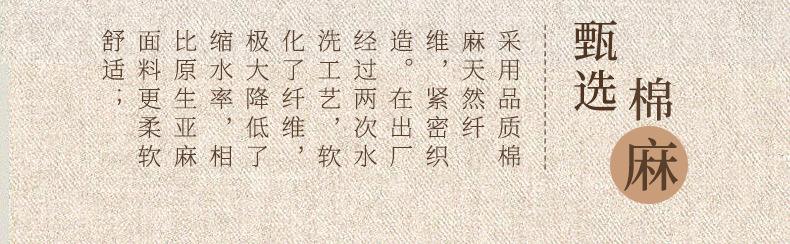 甄选
棉麻
采用品质棉
麻天然纤
维，紧密织
造。在出厂
经过两次水
洗工艺，软
化了纤维，
极大降低了
缩水率，相
比原生亚麻
面料更柔软
舒适；